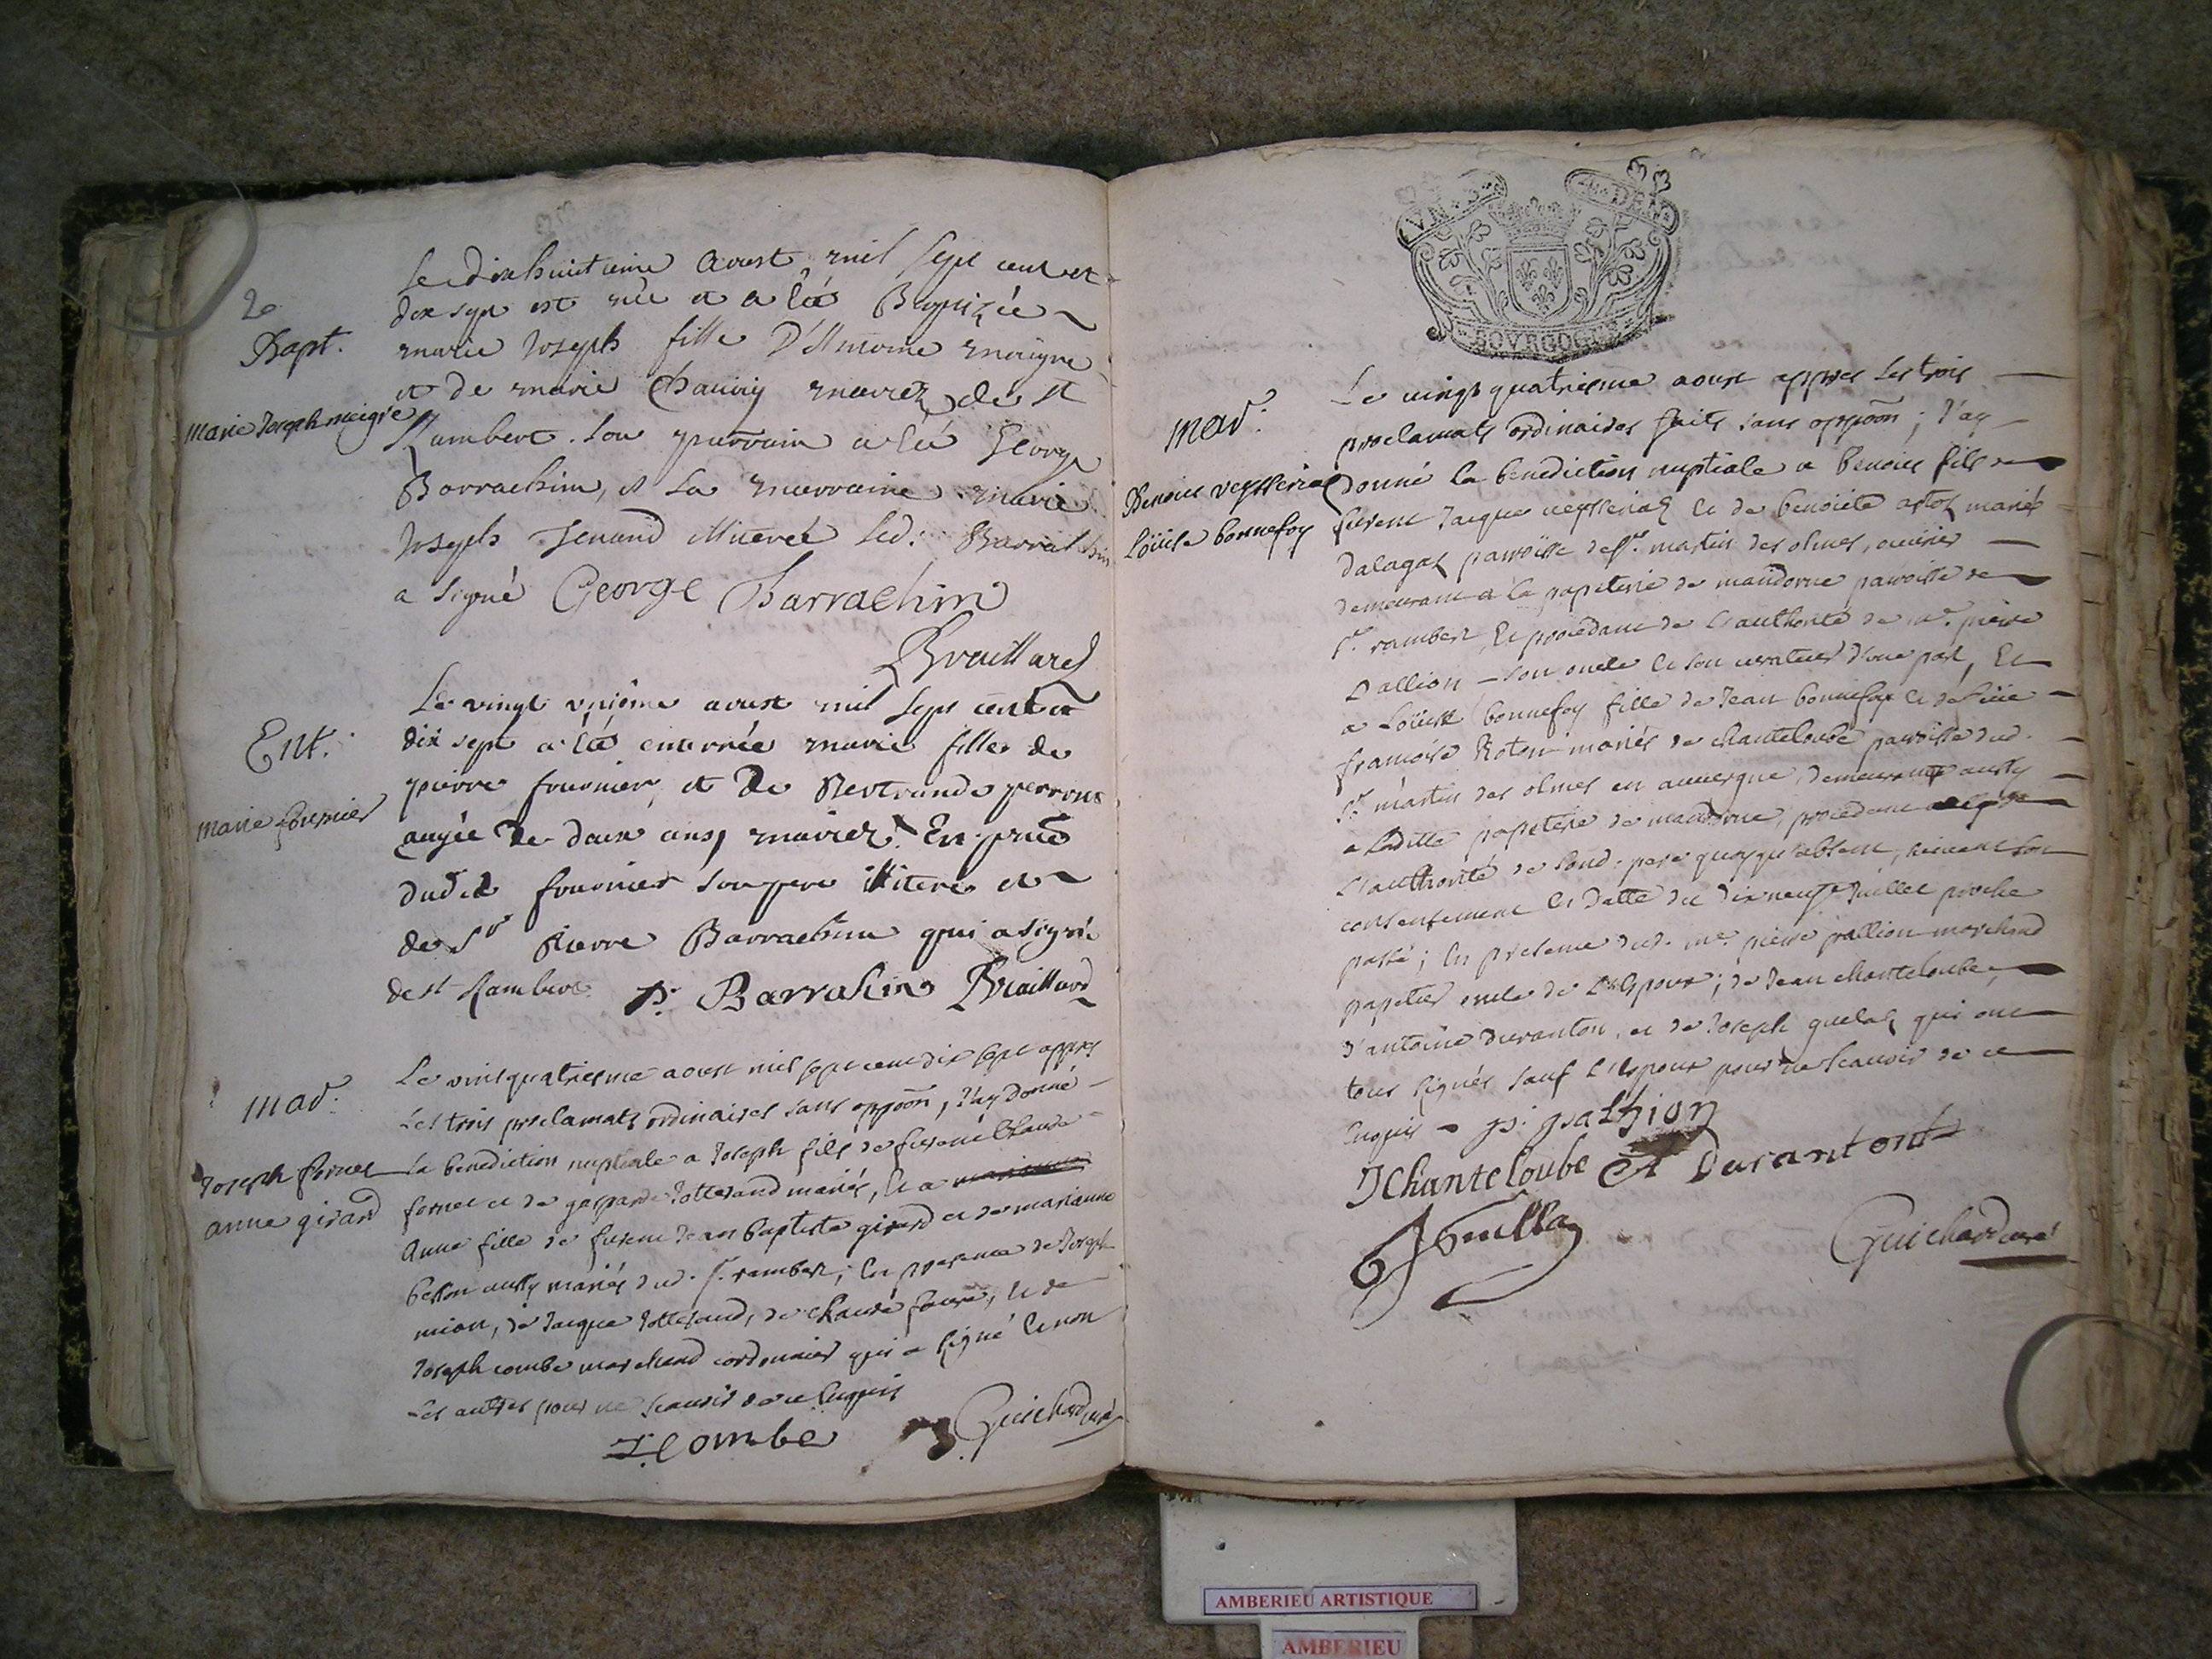 20
Bapt.
marie Joseph meigre
Le dixhuitieme Aoust mil sept cent et
dix sept est née et a été Baptizée
marie Joseph fille D'Antoine maigre
et de marie Chauvy mariez de st
Rambert. son parrain a été George
Barrachin, et sa marraine marie
Joseph Tenand illiterée led: Barrachin
a signé George Barrachin
Braillard
Ent:
marie fournier
Le vingt vnieme aoust mil sept cent et
dix sept a été enterrée marie fille de
pierre fournier, et de Bertrande perrons
augée de deux ans, mariez. En pnce
dudit fournier son pere illiteré et
de Sr Pierre Barrachin qui a signé
de st Rambert P. Barrachin Braillard
mar:
Joseph fornet
anne girard
Le vintquatriesme aoust mil sept cent dix sept appres
Les trois proclamats ordinaires sans oppoon, J'ay donné
La benediction nuptiale a Joseph fils de furent Claude
fornet et de gasparde Totterand mariés, Et a
Anne fille de furent Jean baptiste girard et de marianne
besson aussy mariés dud. St. rambert; En presence de Joseph
mion, de Jacque Totterand, de Claude faure, Et de
Joseph combe marchand cordonnier qui a signé Et non
Les autres pour ne scavoir de ce Enquis
J. Combe Guichard curé
VN S DEN
BOVRGOGNE
mar:
Benoict veysseriaz
Loüise bonnefoy
Le vingt quatriesme aoust appres Les trois
proclamats ordinaires faits sans oppoon; J'ay
donné la benediction nuptiale a benoict fils de
furent Jacque veysseriaz Et de benoite artoz mariés
dalagat parroisse de st. martin des olmes, ouvrier
demeurant a la papeterie de maudorne parroisse de
St. rambert, Et procedant de L'authorité de me. pierre
pallion son oncle Et son curateur d'une part, Et
a Loüise bonnefoy fille de Jean bonnefoy Et de
francoise Roten mariés de chanteloube parroisse dud.
St. martin des olmes en auvergne, demeurante aussy
a Laditte papeterie de maudorne, procedant
L'authorité de sond. pere quoyqu'absent, suivant son
consentement En datte du dix neuf Juillet proche
passé; En presence dud. me. pierre pallion marchand
papetier oncle de L'Espoux; de Jean chanteloube,
d'antoine duranton, et de Joseph guelaz qui ont
tous signés sauf L'Espoux pour ne scavoir de ce
Enquis p. palhion
J Chanteloube A Durantont
Guichard curé
AMBERIEU ARTISTIQUE
AMBERIEU